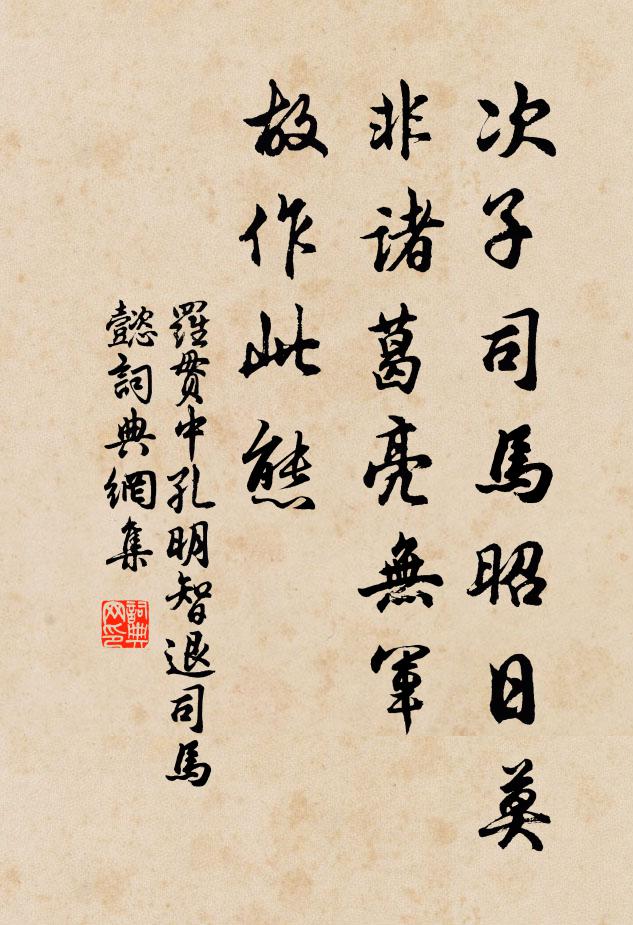 次子司馬昭日莫
非諸葛亮無軍
故作此態
羅貫中孔明智退司馬
懿詞典網集
詞典
网印